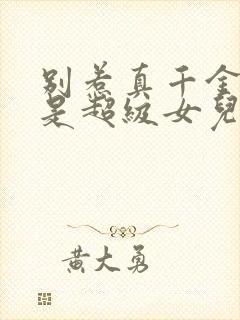 别惹真千金
是超级女儿
黄大勇